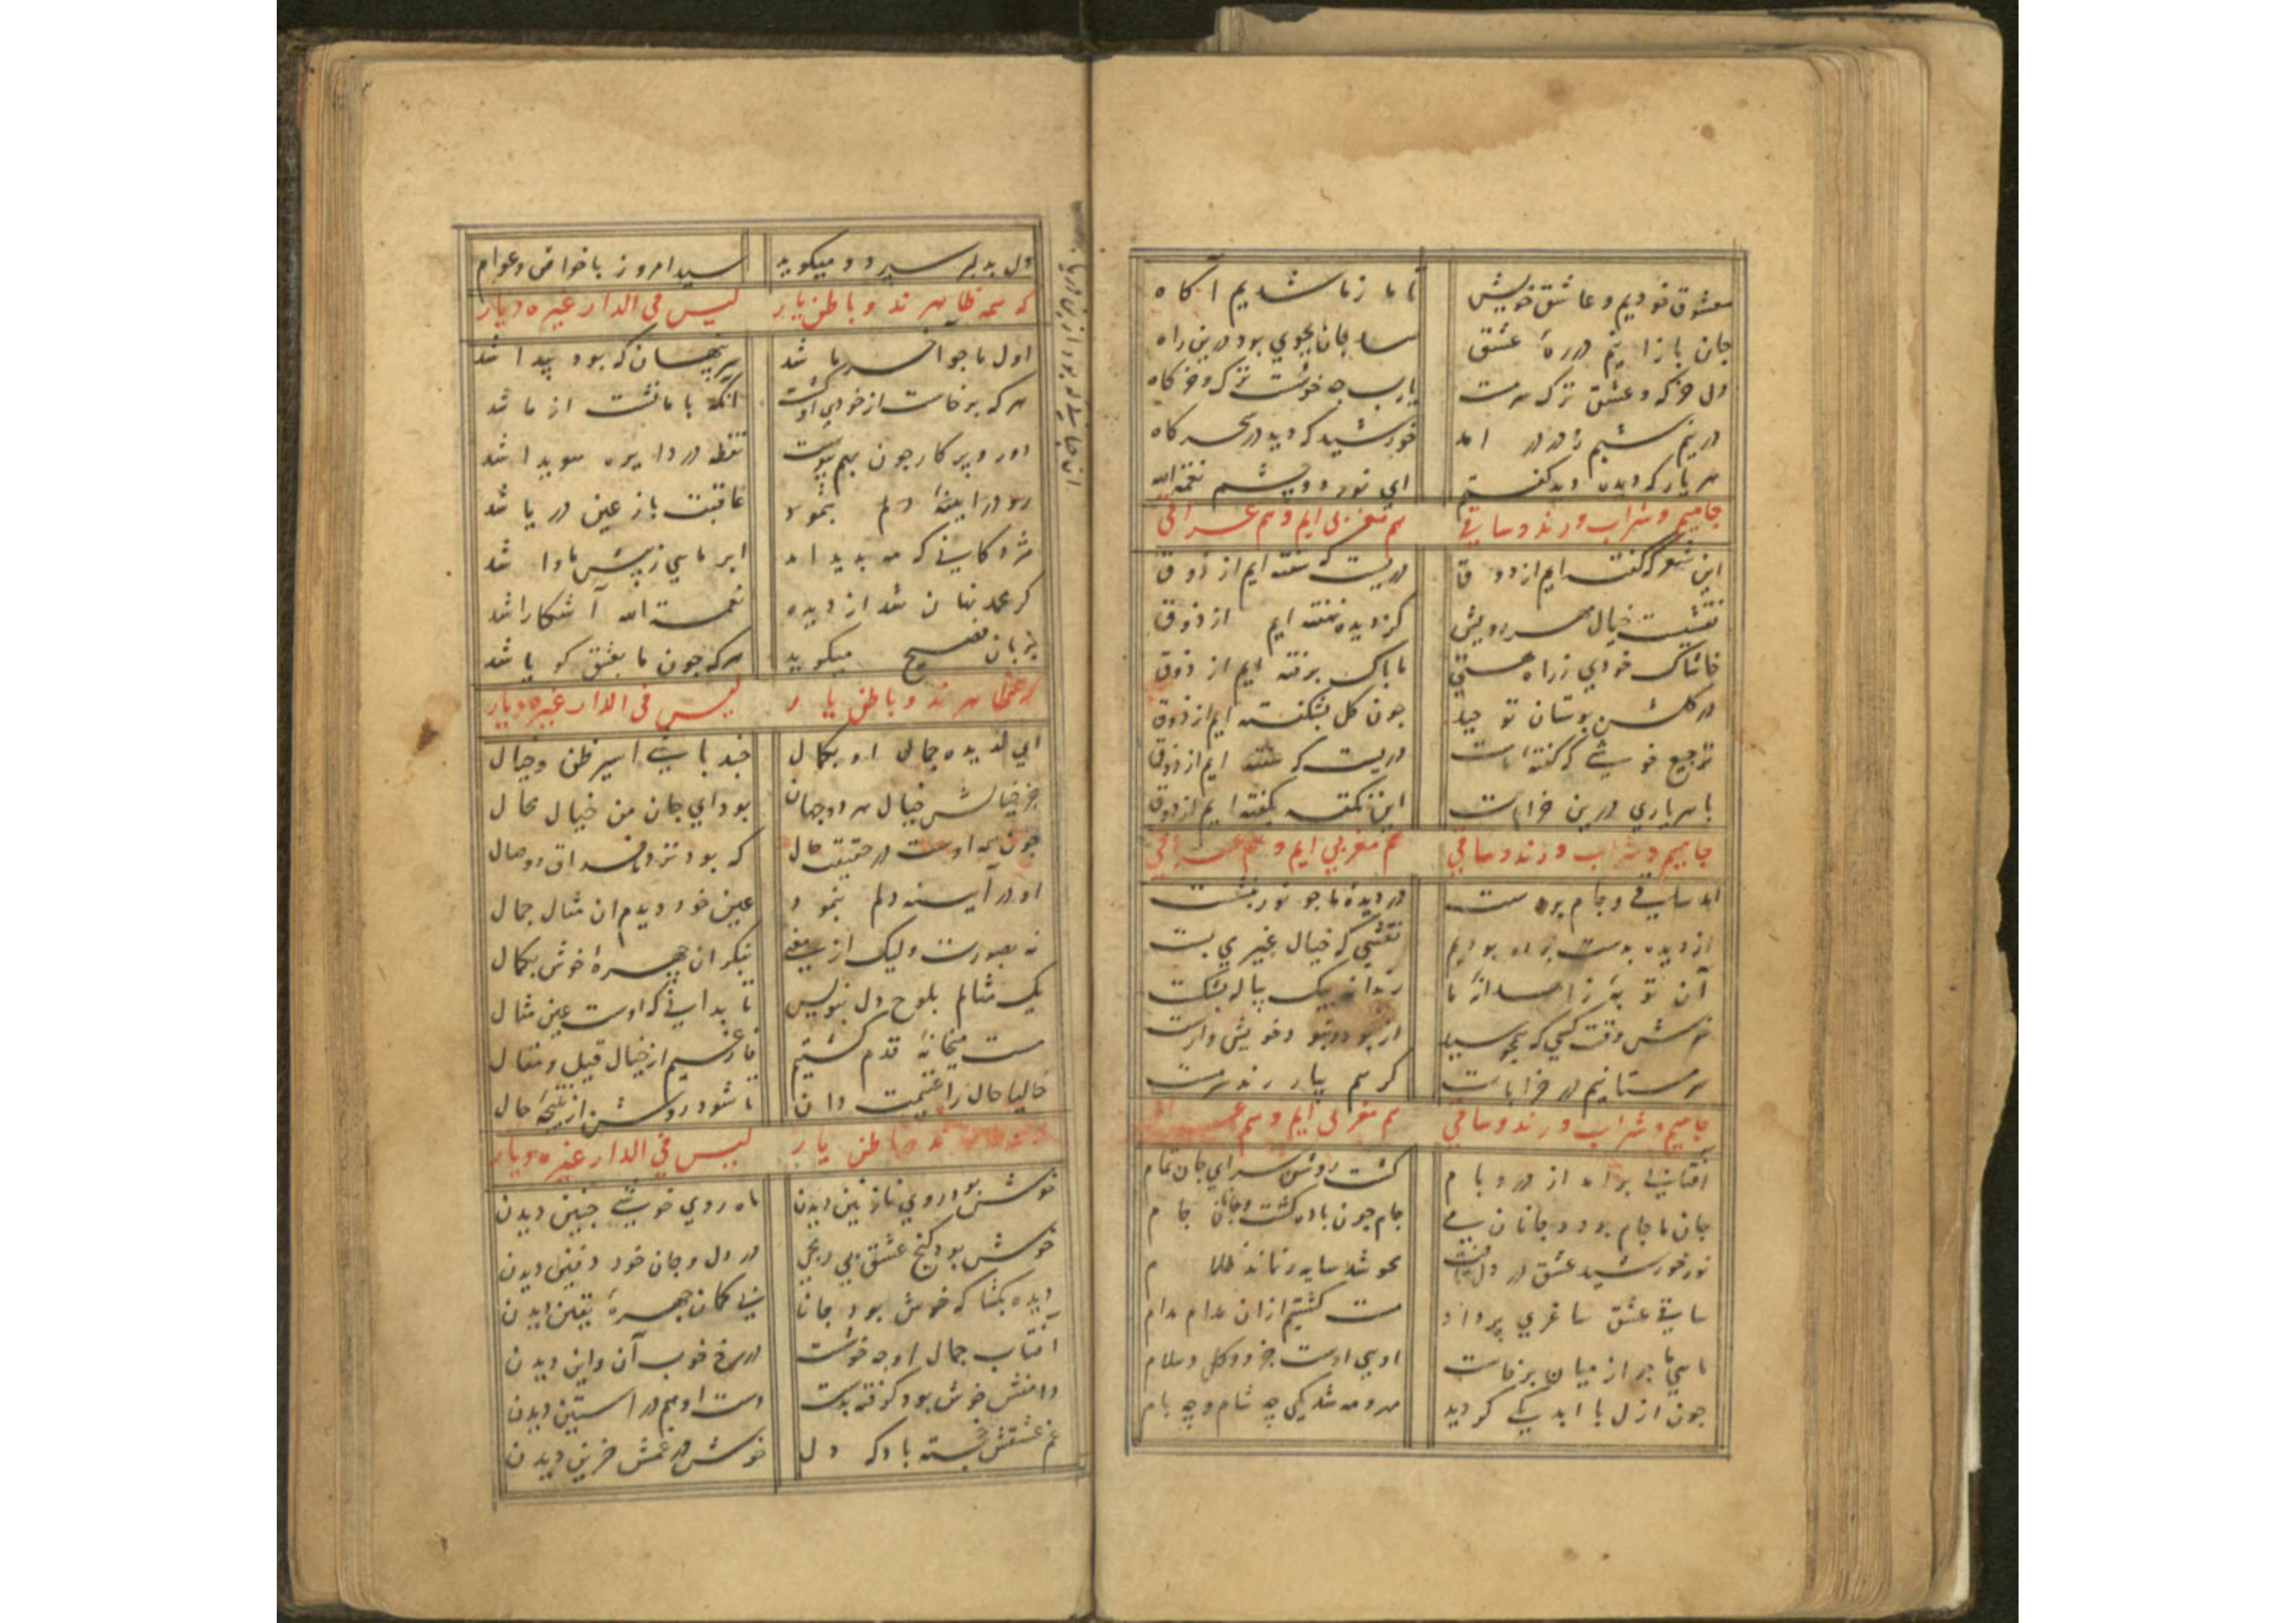 معشوق خودیم و عاشق خویش تا ما ز ما شدیم آکاه
جان بازانیم در ره عشق بجوی بود درین راه
دل خرکه و عشق ترک سرمست یا رب چه خوشست ترک و خرکاه
در نیم شبم ز در در امد خورشید که دید در سحرکاه
هر یار که دیده دید کفتم ای نور دو چشم نعمة الله
جامیم و شراب و رند و ساقی هم مغربی ایم و هم عراقی
این شعر که کفته ایم از ذوق دریست که سفته ایم از ذوق
نقشیست خیال مهر رویش کز دیده نهفته ایم از ذوق
خاشاک خودی ز راه هستی ما پاک برفته ایم از ذوق
در کلشن بوستان توحید چون کل بشکفته ایم از ذوق
ترجیع خوشی که کفته است دریست که سفته ایم از ذوق
با هر یاری درین خرابات این نکته بکفته ایم از ذوق
جامیم و شراب و رند و ساقی هم مغربی ایم و هم عراقی
امد ساقی و جام بر دست در دیده ما چو نور بنشست
از دیده بوست نقشی که خیال غیر می بست
آن توبه زاهدانه ما رندانه بیک پیاله بشکست
خوش وقت کسی که همچو سید از بود و نبود خویش وارست
سرمستانیم در خرابات کر هم یار رند سرمست
جامیم و شراب و رند و ساقی هم مغربی ایم و هم
افتابی برامد از در و بام کشت روشن سرای جان تمام
جان ما جام بود و جانان می جام چون باده کشت و جانان جام
نور خورشید عشق در دل محو شد سایه و نماند ظلام
ساقی عشق ساغری پر داد مست کشتیم ازان مدام مدام
مایی ما چو از میان برخاست اویی اوست جزو و کل و سلام
چون ازل با ابد یکی کردید مه شد یکی چه شام و چه بام
دل بدلبر سپرد و میکوید سید امروز با خواص و عوام
که همه ظاهرند و باطن یار لیس فی الدار غیره دیار
اول ما چو آخر ما شد سر پنهان که بود پیدا شد
هر که برخاست از خودی آنکه با ما نشست از ما شد
دور و پرکار چون بهم پیوست نقطه در دایره هویدا شد
در اینه دلم بنمود عاقبت باز عین دریا شد
مژدکانی که مه بدید امد ابر مایی ز پیش ما وا شد
کر محمد نهان شد از دیده نعمت الله آشکارا شد
بزبان فصیح میکوید هر که چون ما بعشق کویا شد
که ظاهرند و باطن یار لیس فی الدار غیره دیار
ای ندیده جمال او بکمال چند باشی اسیر ظن و خیال
جز خیالش خیال هر دو جهان بود ای جان من خیال محال
چون همه اوست در حقیقت حال که بود نزد ما فراق و وصال
او در آینه دلم بنمود عین خود دیدم ان مثال جمال
نه بصورت ولیک از معنی بنکر ان چهره خوش بکمال
یک مثالم بلوح دل بنویس تا بدانی که اوست عین مثال
مست میخانه قدم کشتیم فارغیم از خیال قیل و مقال
حالیا حال را غنیمت دان تا شود روشن از نتیجه حال
باطن یار لیس فی الدار غیره دیار
خوش بود روی نازنین دیدن ماه روی خوشی چنین دیدن
خوش بود کنج عشق بی رنجی در دل و جان خود دفین دیدن
دیده بکشا که خوش بود جانا بی کمان چهره یقین دیدن
آفتاب جمال او چه خوشست در رخ خوب آن و این دیدن
دامنش خوش بود کرفته بدست دست او هم در استین دیدن
غم عشقش خجسته باد که دل خوش در غمش حزین دیدن